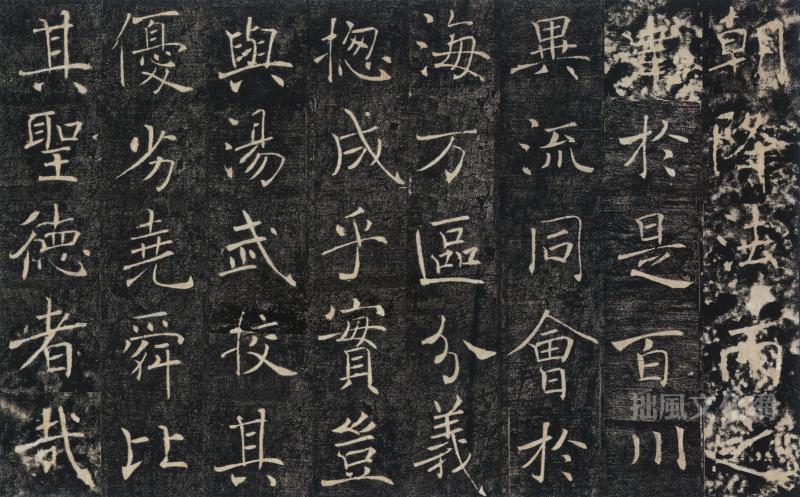 朝降法雨之
津於是百川
異流同會於
海万區分義
揔成乎實豈
與湯武校其
優劣堯舜比
其聖徳者哉
拙風文化網